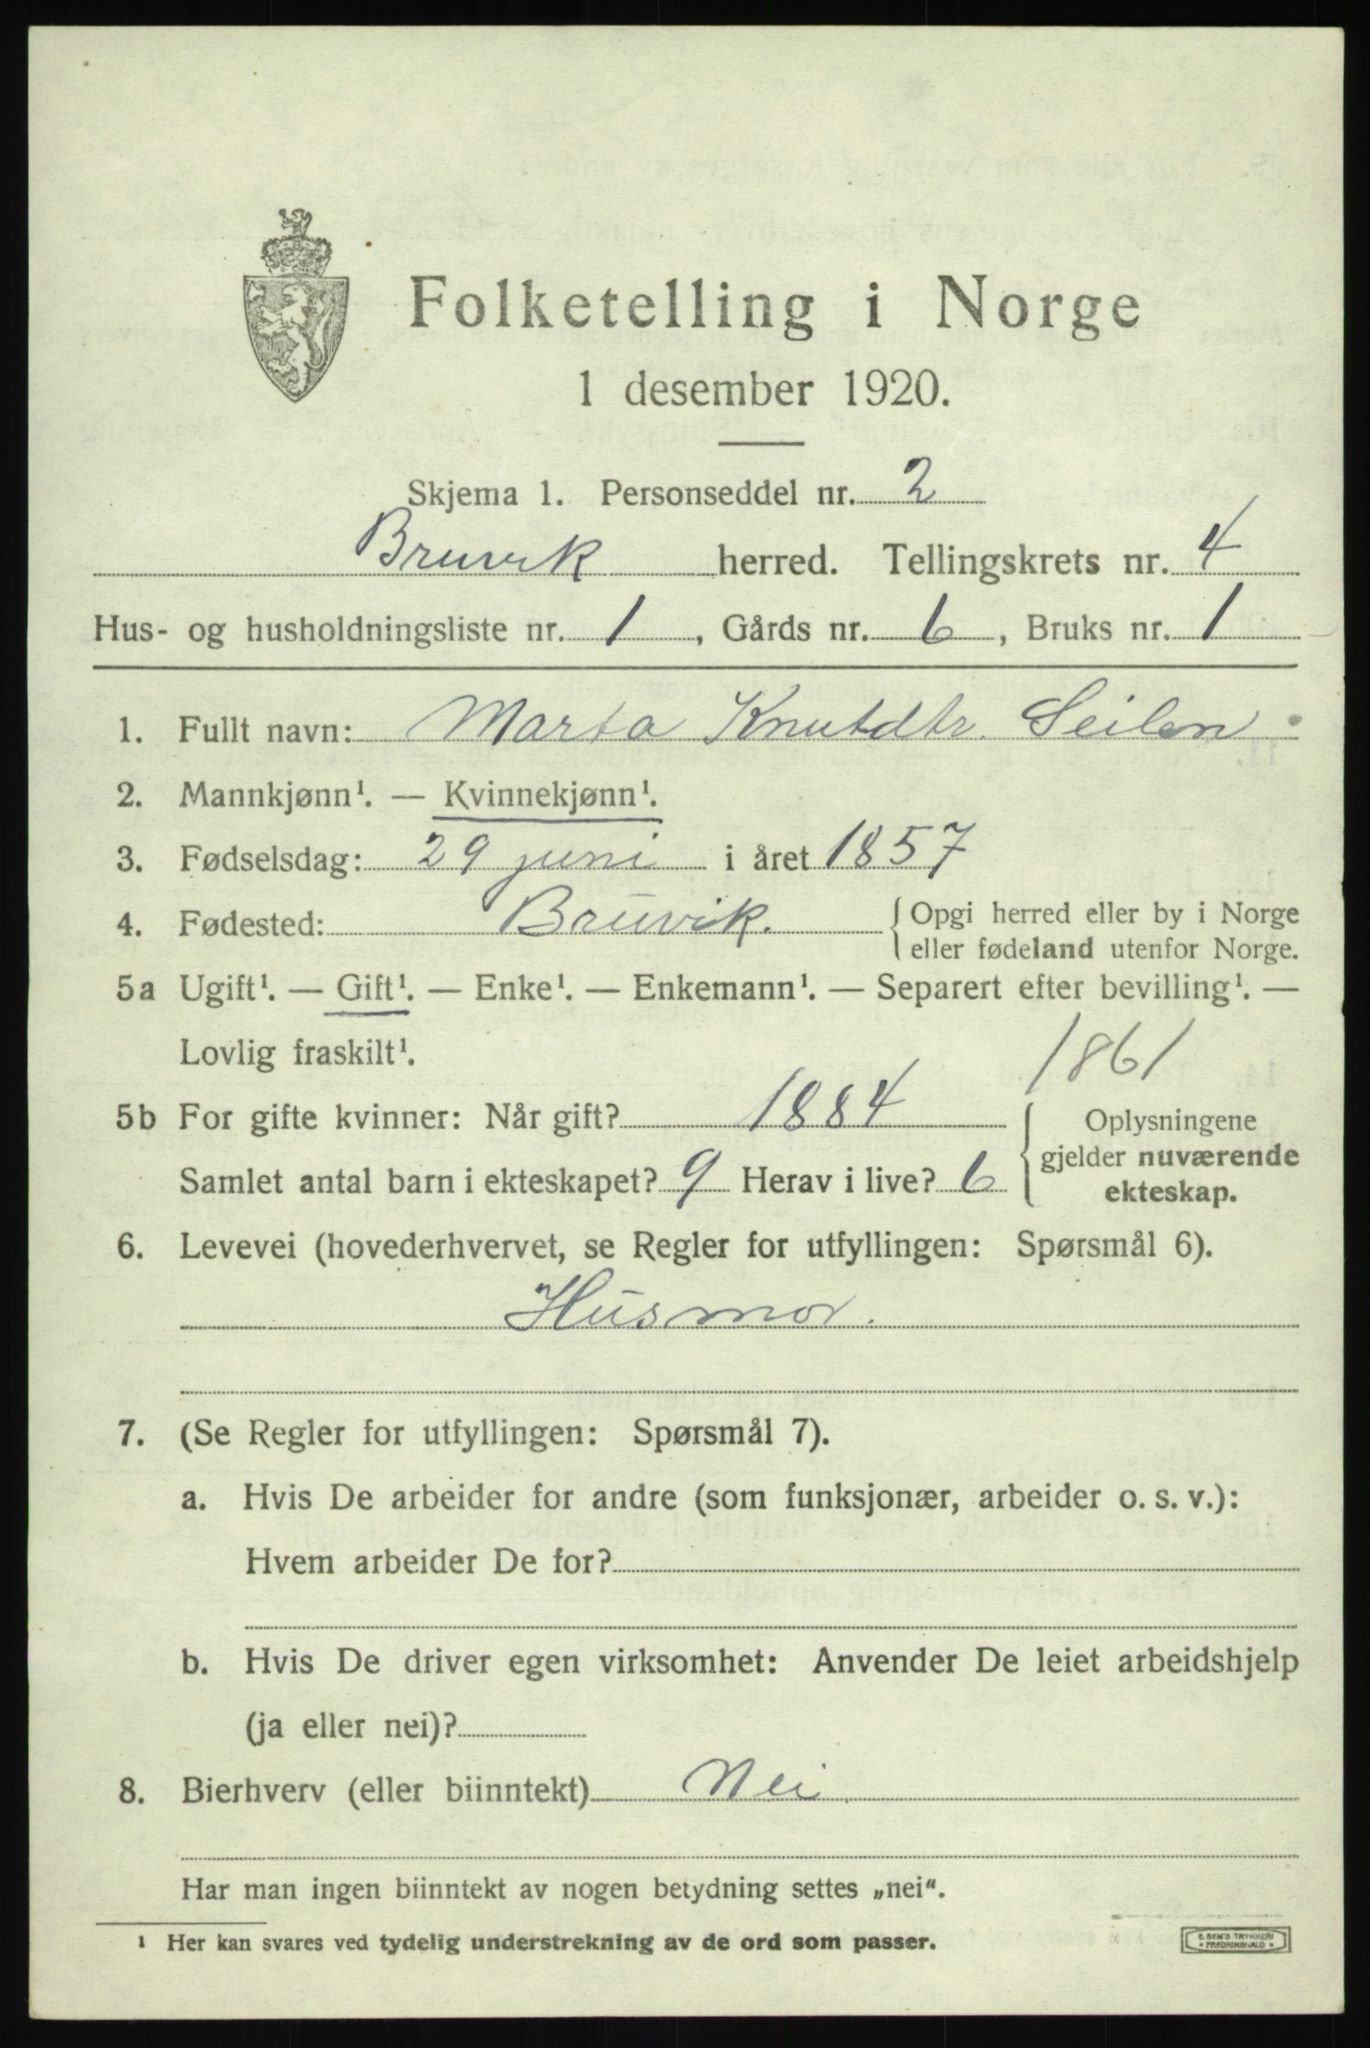 Folketelling i Norge
1 desember 1920.
Skjema 1. Personseddel nr. 2
Bruvik herred. Tellingskrets nr. 4
Hus- og husholdningsliste nr. 1, Gårds nr. 6, Bruks nr. 1
1. Fullt navn: Marta Knutdtr. Seilen
2. Mannkjønn¹. — Kvinnekjønn¹.
3. Fødselsdag: 29 juni i året 1857
4. Fødested: Bruvik. { Opgi herred eller by i Norge
eller fødeland utenfor Norge.
5a Ugift¹. — Gift¹. — Enke¹. — Enkemann¹. — Separert efter bevilling¹. —
Lovlig fraskilt¹. 1861
5b For gifte kvinner: Når gift? 1884 { Oplysningene
gjelder nuværende
Samlet antal barn i ekteskapet? 9 Herav i live? 6
ekteskap.
6. Levevei (hovederhvervet, se Regler for utfyllingen: Spørsmål 6).
Husmor.
7. (Se Regler for utfyllingen: Spørsmål 7).
a. Hvis De arbeider for andre (som funksjonær, arbeider o. s. v.):
Hvem arbeider De for?
b. Hvis De driver egen virksomhet: Anvender De leiet arbeidshjelp
(ja eller nei)?
8. Bierhverv (eller biinntekt) Nei.
Har man ingen biinntekt av nogen betydning settes „nei“.
¹ Her kan svares ved tydelig understrekning av de ord som passer.
E. SEM'S TRYKKERI
* FREDRIKSHALD *